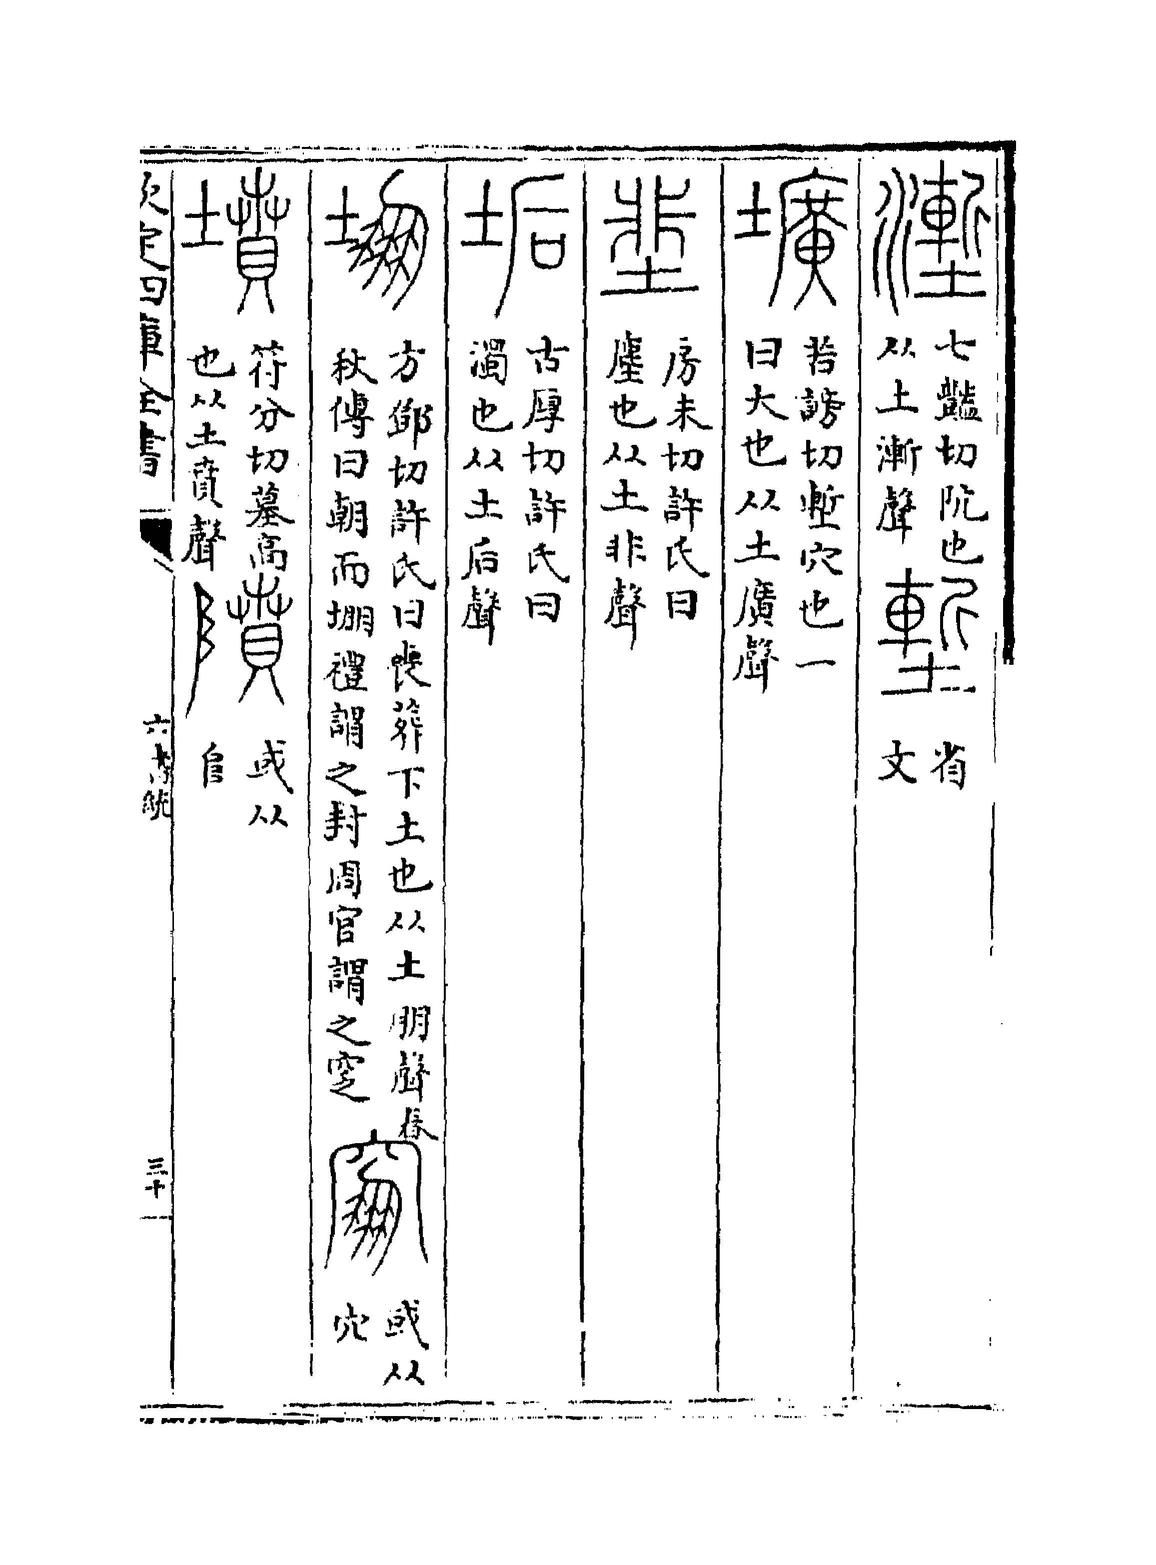 七豔切阬也
从土漸聲
塹
省
文
壙
苦謗切塹穴也一
曰大也从土廣聲
房未切許氏曰
塵也从土非聲
垢
古厚切許氏曰
濁也从土后聲
堋
方鄧切許氏曰喪葬下土也从土朋聲春
秋傳曰朝而堋禮謂之封周官謂之窆
或从
穴
墳
符分切墓高
也从土賁聲
隫
或从
𨸏
欽定四庫全書
六書統
三十